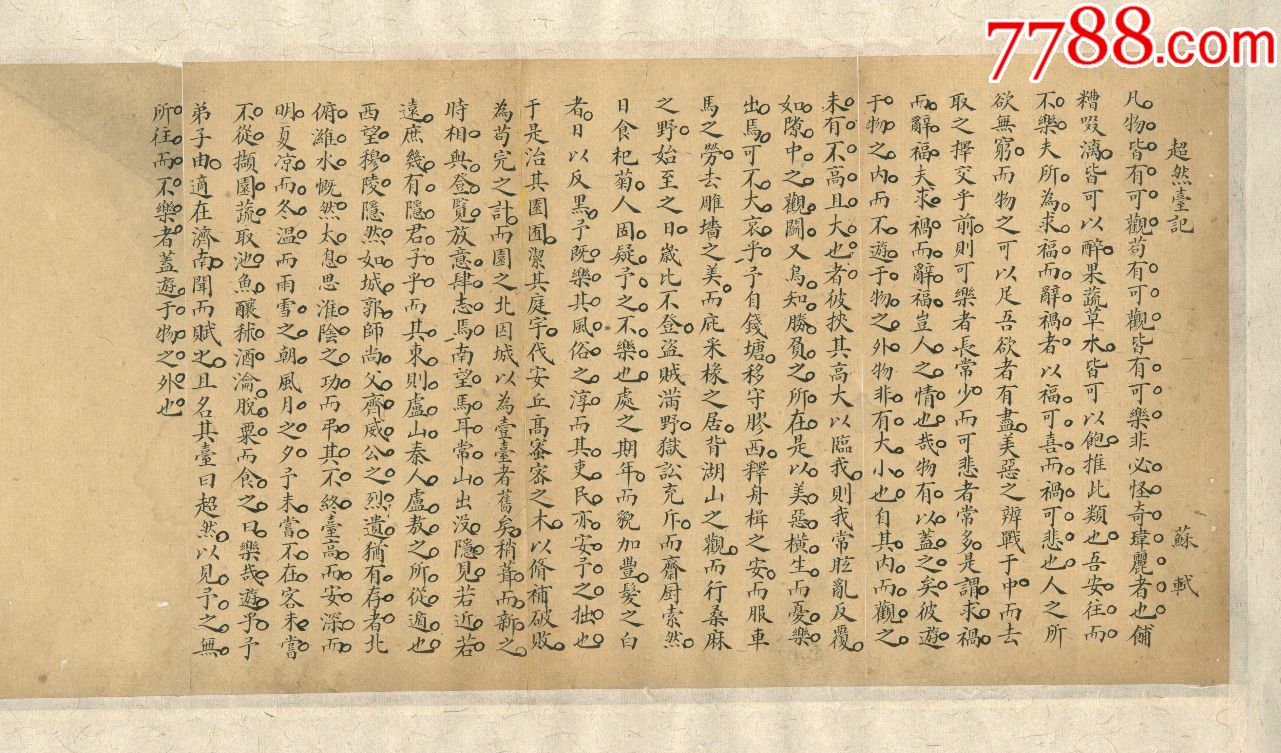 7788.com
超然臺記
蘇軾
凡物皆有可觀苟有可觀皆有可樂非必怪奇瑋麗者也餔
糟啜漓皆可以醉果蔬草木皆可以飽推此類也吾安往而
不樂夫所為求福而辭禍者以福可喜而禍可悲也人之所
欲無窮而物之可以足吾欲者有盡美惡之辨戰于中而去
取之擇交乎前則可樂者長常少而可悲者常多是謂求禍
而辭福夫求禍而辭福豈人之情也哉物有以蓋之矣彼遊
于物之內而不遊于物之外物非有大小也自其內而觀之
未有不高且大也者彼挾其高大以臨我則我常眩亂反覆
如隙中之觀鬪又烏知勝負之所在是以美惡橫生而憂樂
出焉可不大哀乎予自錢塘移守膠西釋舟楫之安而服車
馬之勞去雕墻之美而庇采椽之居背湖山之觀而行桑麻
之野始至之日歲比不登盜賊滿野獄訟充斥而齋厨索然
日食杞菊人固疑予之不樂也處之期年而貌加豐髮之白
者日以反黒予既樂其風俗之淳而其吏民亦安予之拙也
于是治其園囿潔其庭宇代安丘髙蜜宻之木以脩補破敗
為苟完之計而園之北因城以為臺臺者舊矣稍葺而新之
時相與登覽放意肆志焉南望馬耳常山出没隱見若近若
遠庶幾有隱君子乎而其東則盧山秦人盧敖之所從遁也
西望穆陵隱然如城郭師尚父齊威公之烈遺猶有存者北
俯濰水慨然太息思淮陰之功而弔其不終臺高而安深而
明夏凉而冬温而雨雪之朝風月之夕予未嘗不在客未嘗
不從擷園蔬取池魚釀秫酒瀹脫粟而食之曰樂哉遊乎予
弟子由適在濟南聞而賦之且名其臺曰超然以見予之無
所往而不樂者蓋遊于物之外也